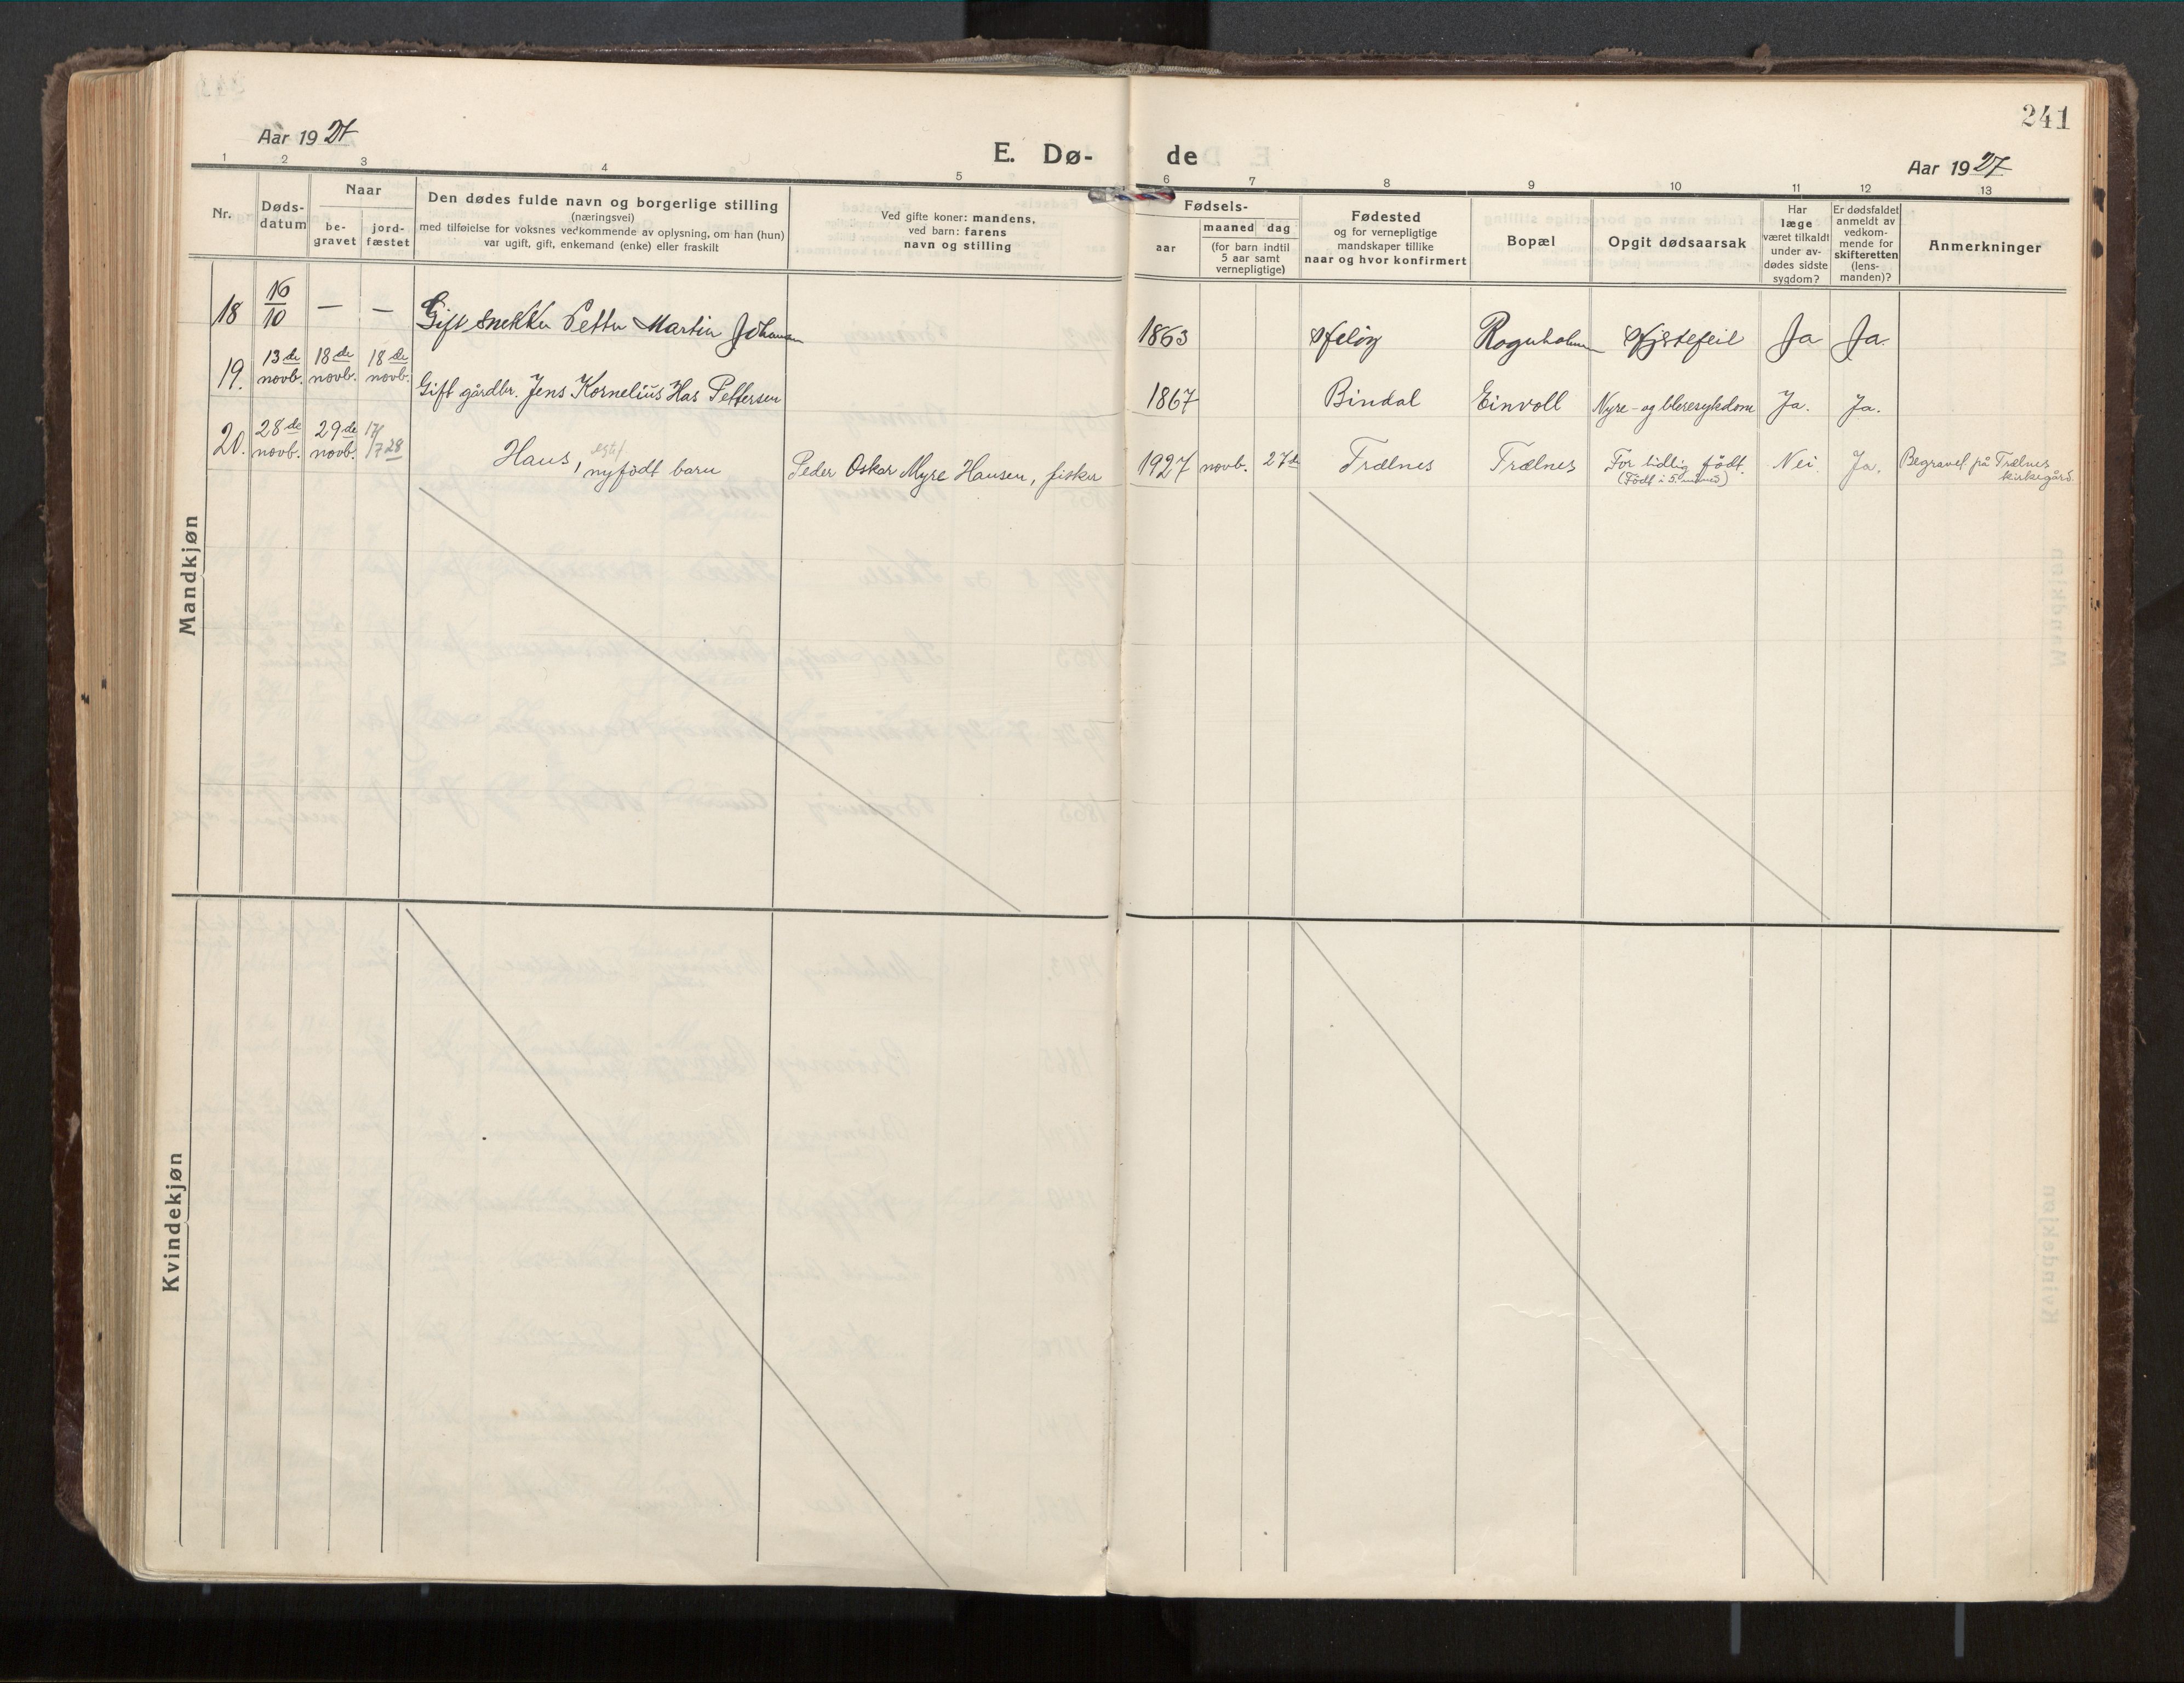 241
Aar 1927
E. Dø- de
Aar 1927
1 2 3 4 5 6 7 8 9 10 11 12 13
Nr.
Døds-
datum
Naar
be-
gravet
jord-
fæstet
Den dødes fulde navn og borgerlige stilling
(næringsvei)
med tilføielse for voksnes vedkommende av oplysning, om han (hun)
var ugift, gift, enkemand (enke) eller fraskilt
Ved gifte koner: mandens,
ved barn: farens
navn og stilling
Fødsels-
aar
maaned dag
(for barn indtil
5 aar samt
vernepligtige)
Fødested
og for vernepligtige
mandskaper tillike
naar og hvor konfirmert
Bopæl
Opgit dødsaarsak
Har
læge
været tilkaldt
under av-
dødes sidste
sygdom?
Er dødsfaldet
anmeldt av
vedkom-
mende for
skifteretten
(lens-
manden)?
Anmerkninger
Mandkjøn
18 16/10 — — Gift snekker Petter Martin Johansen 1863 Hjertefeil Ja Ja.
19. 13de novb. 18de novb. 18de novb. Gift gårdbr. Jens Kornelius Has Pettersen 1867 Bindal Einvoll Nyre- og bleresykdom Ja. Ja.
20. 28de novb. 29de novb. 17/7 28 Hans, egtef. nyfødt barn Peder Oskar Myre Hansen, fisker 1927 novb. 27de Trælnes Trælnes For tidlig født. (Født i 5. måned) Nei. Ja. Begravet på Trælnes kirkegård.
Kvindekjøn